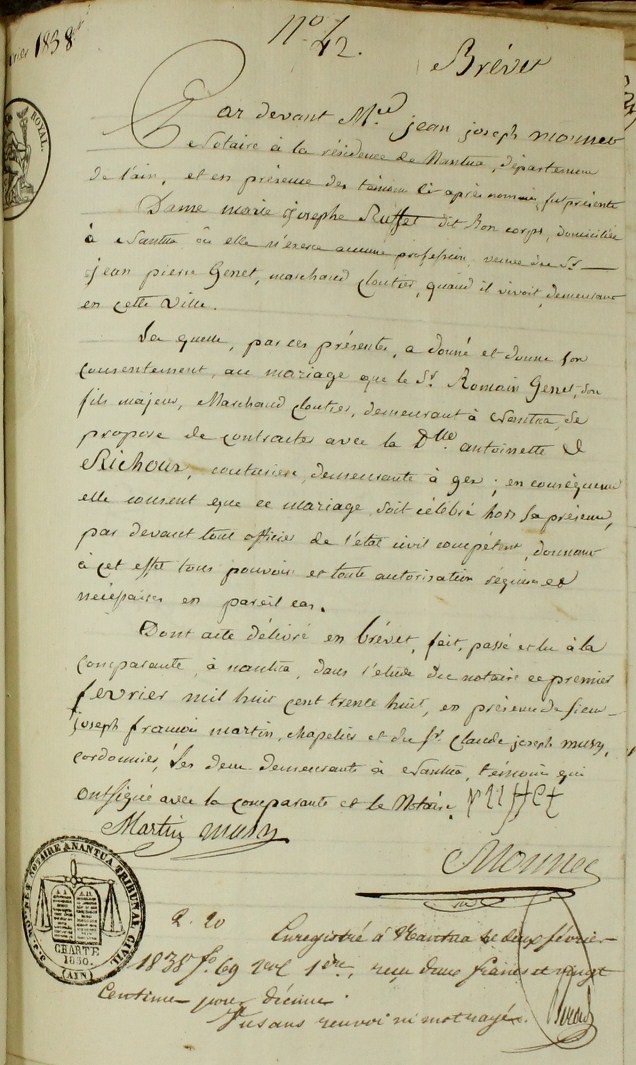 1838
N.º 42.
Brévet
ROYAL.
Par devant M.e jean joseph monnet
Notaire à la résidence de Nantua, département
de l'ain, et en présence des témoins ci après nommés, fut présente
Dame marie josephe Ruffet dit bon corps, domiciliée
à Nantua où elle n'exerce aucune profession, veuve du Sr.
jean pierre Genet, marchand cloutier, quand il vivoit, demeurant
en cette ville.
La quelle, par ces présentes, a donné et donne son
consentement, au mariage que le Sr. Romain Genet, son
fils majeur, Marchand cloutier, demeurant à Nantua, se
propose de contracter avec la Dlle antoinette
Richoux, couturière, demeurante à gex; en conséquence
elle consent que ce mariage soit célébré hors sa présence,
par devant tout officier de l'état civil compétent, donnant
à cet effet tous pouvoirs et toute autorisation requise et
nécessaires en pareil cas.
Dont acte délivré en brévet, fait, passé et lu à la
comparante, à nantua, dans l'etude du notaire ce premier
fevrier mil huit cent trente huit, en présence de sieur
joseph francois martin, chapelier et du Sr. claude joseph musy,
cordonnier, les deux demeurants à Nantua, témoins qui
ont signé avec la comparante et le Notaire. ruffet
Martin musy
Monnet
NOTAIRE A NANTUA TRIBUNAL CIVIL
CHARTE
1830.
(AIN)
2. 20
Enregistré à Nantua le deux février
1838 fo. 69 vol 1.re, reçu deux francs et vingt
centimes pour décime
Plus sans renvoi ni mot rayé.